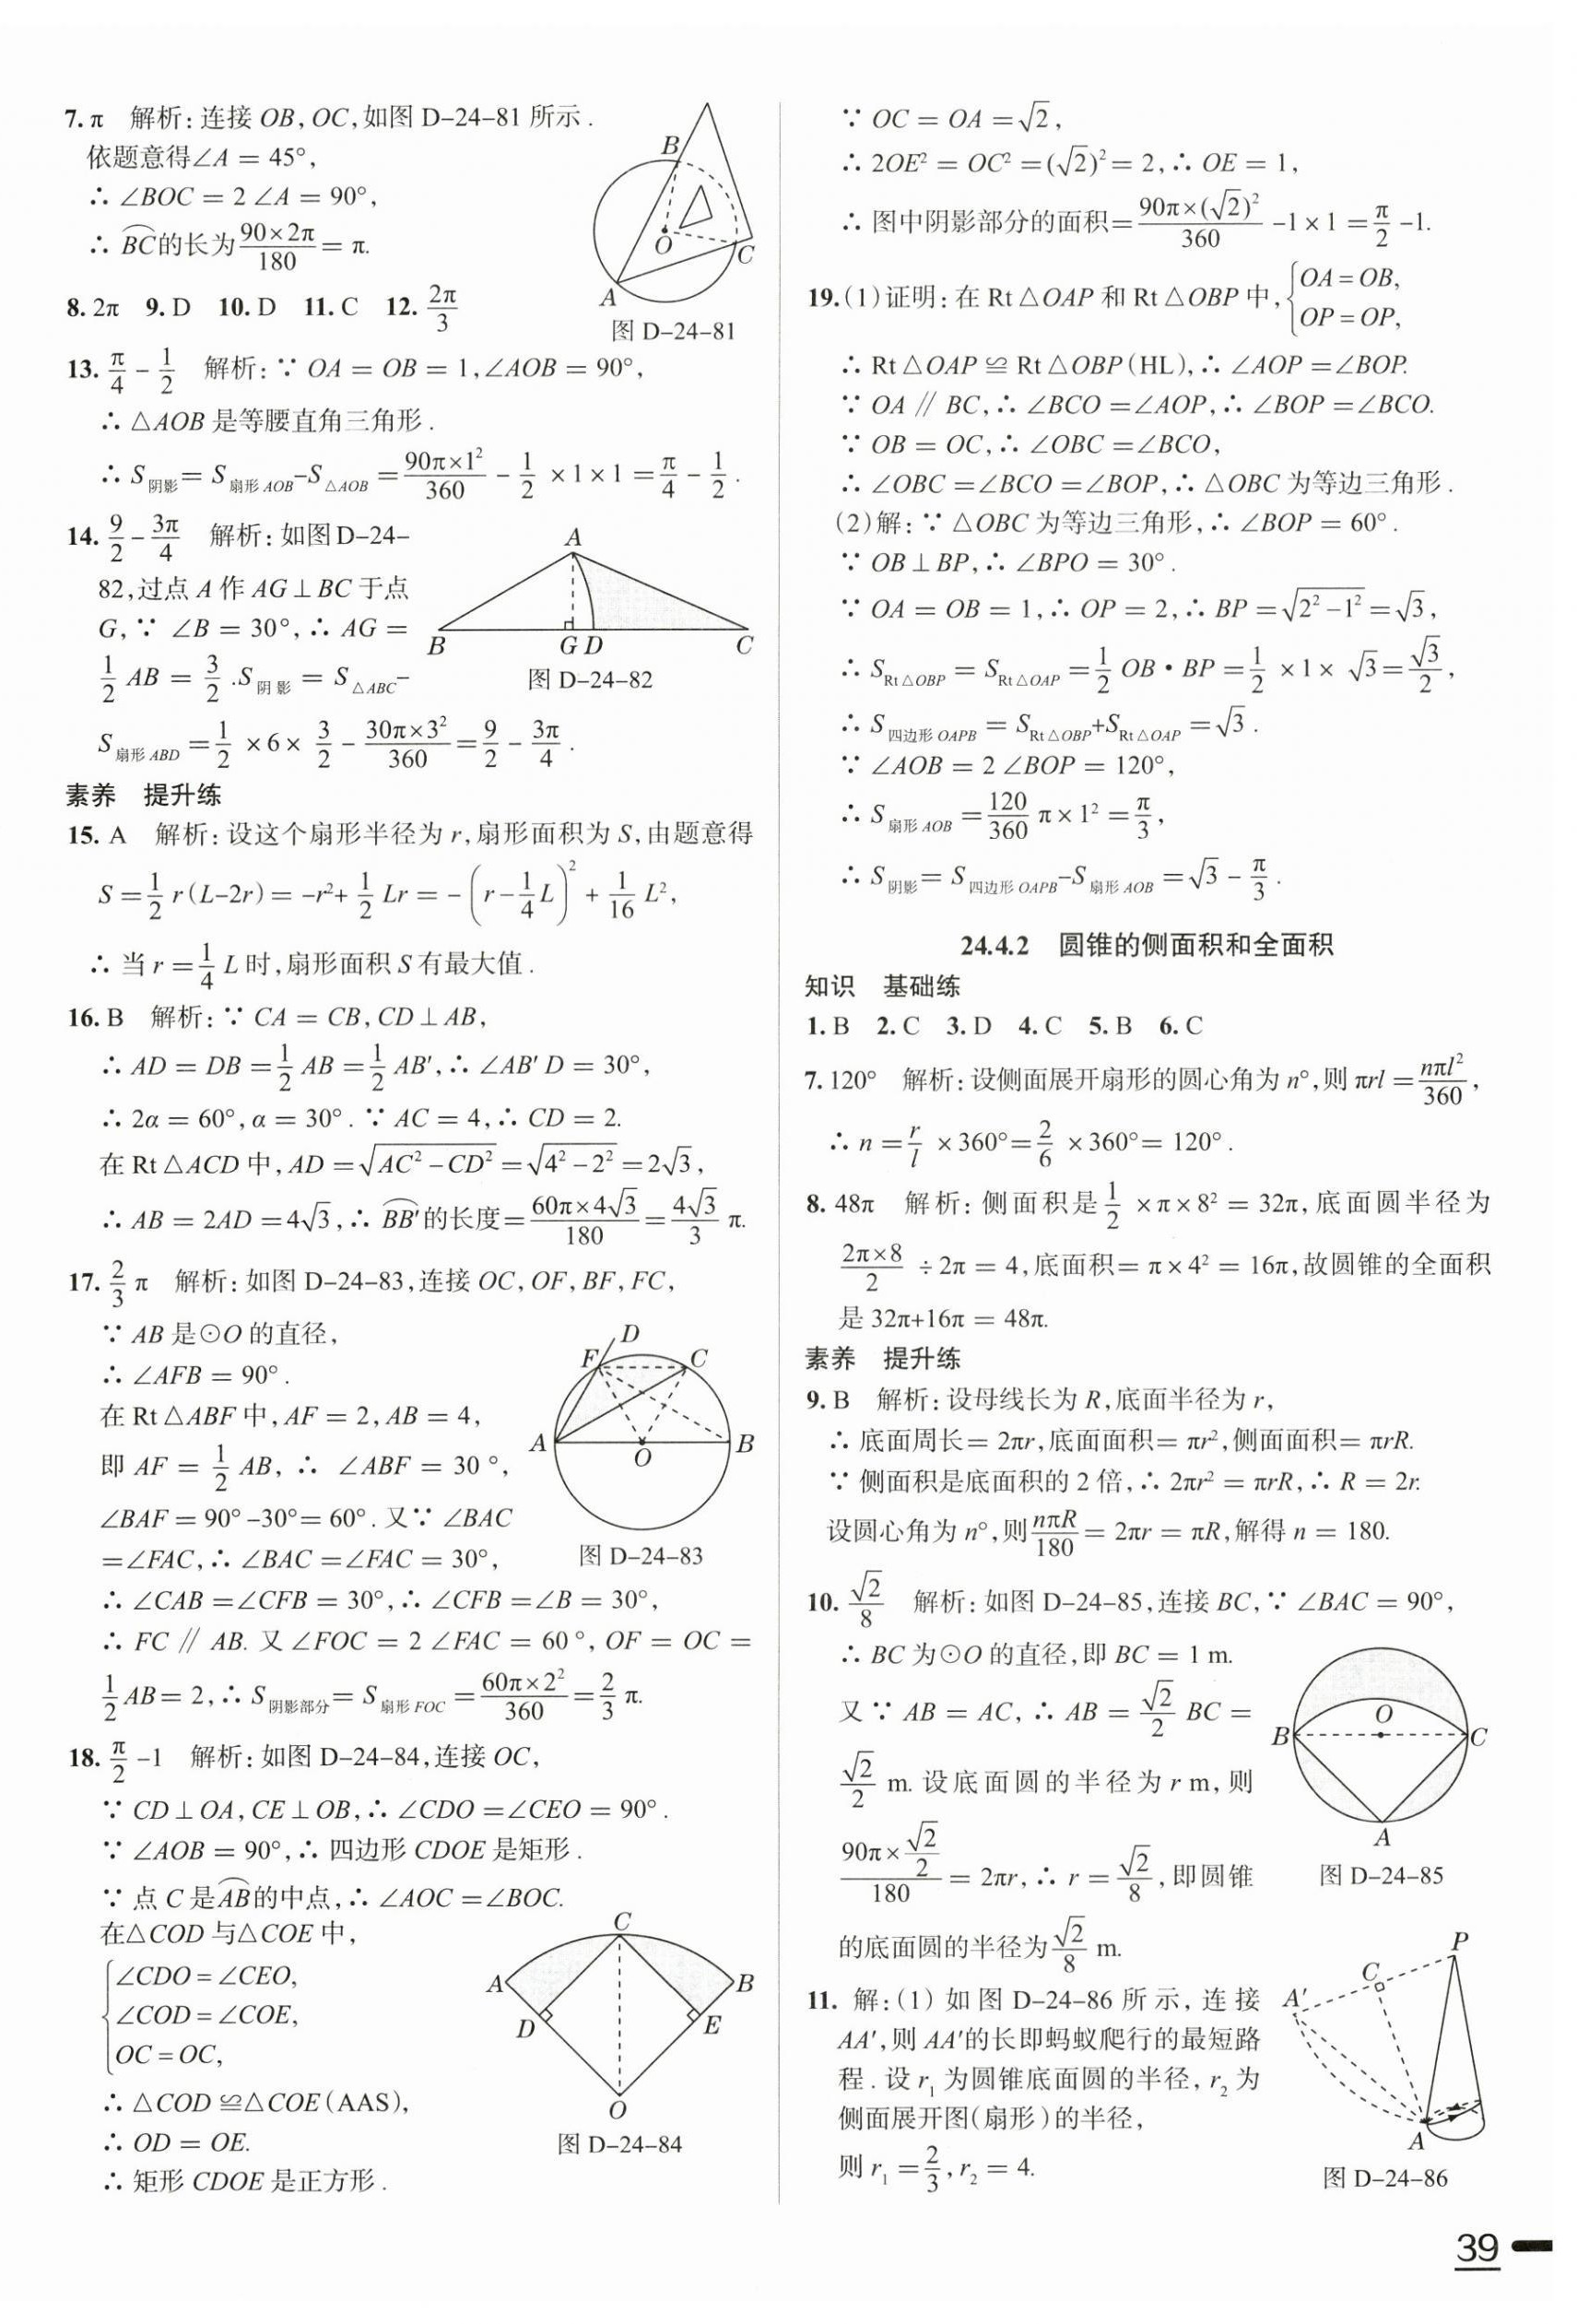 7. π 解析：连接 OB，OC，如图 D–24–81 所示.
依题意得∠A = 45°，
∴ ∠BOC = 2 ∠A = 90°，
∴ $\overset{\frown}{BC}$的长为$\frac{90×2π}{180}$ = π.
B
O
C
A
图 D–24–81
8. 2π 9. D 10. D 11. C 12. $\frac{2π}{3}$
13. $\frac{π}{4}-\frac{1}{2}$ 解析：∵ OA = OB = 1，∠AOB = 90°，
∴ △AOB 是等腰直角三角形.
∴ $S_{阴影}=S_{扇形AOB}-S_{△AOB}=\frac{90π×1^2}{360}-\frac{1}{2}×1×1=\frac{π}{4}-\frac{1}{2}$.
14. $\frac{9}{2}-\frac{3π}{4}$ 解析：如图D–24–
82，过点 A 作 AG⊥BC 于点
G，∵ ∠B = 30°，∴ AG =
$\frac{1}{2}$ AB = $\frac{3}{2}$ .$S_{阴影}$ = $S_{△ABC}$–
$S_{扇形ABD}=\frac{1}{2}×6×\frac{3}{2}-\frac{30π×3^2}{360}=\frac{9}{2}-\frac{3π}{4}$.
A
B
G D
C
图 D–24–82
素养 提升练
15. A 解析：设这个扇形半径为 r，扇形面积为 S，由题意得
$S=\frac{1}{2}r(L-2r)=-r^2+\frac{1}{2}Lr=-\left(r-\frac{1}{4}L\right)^2+\frac{1}{16}L^2$，
∴ 当 r =$\frac{1}{4}$ L 时，扇形面积 S 有最大值.
16. B 解析：∵ CA = CB，CD⊥AB，
∴ AD = DB =$\frac{1}{2}$ AB =$\frac{1}{2}$ AB′，∴ ∠AB′D = 30°，
∴ 2α = 60°，α = 30°. ∵ AC = 4，∴ CD = 2.
在 Rt△ACD 中，AD =$\sqrt{AC^2-CD^2}=\sqrt{4^2-2^2}=2\sqrt{3}$，
∴ AB = 2AD =$4\sqrt{3}$，∴ $\overset{\frown}{BB'}$的长度=$\frac{60π×4\sqrt{3}}{180}=\frac{4\sqrt{3}}{3}$ π.
17. $\frac{2}{3}$ π 解析：如图 D–24–83，连接 OC，OF，BF，FC，
∵ AB 是⊙O 的直径，
∴ ∠AFB = 90°.
在 Rt△ABF 中，AF = 2，AB = 4，
即 AF = $\frac{1}{2}$ AB，∴ ∠ABF = 30°，
∠BAF = 90°–30°= 60°. 又∵ ∠BAC
=∠FAC，∴ ∠BAC =∠FAC = 30°，
D
F
C
A
O
B
图 D–24–83
∴ ∠CAB =∠CFB = 30°，∴ ∠CFB =∠B = 30°，
∴ FC∥AB. 又 ∠FOC = 2 ∠FAC = 60°，OF = OC =
$\frac{1}{2}$AB= 2，∴ $S_{阴影部分}=S_{扇形FOC}=\frac{60π×2^2}{360}=\frac{2}{3}$ π.
18. $\frac{π}{2}$ –1 解析：如图 D–24–84，连接 OC，
∵ CD⊥OA，CE⊥OB，∴ ∠CDO =∠CEO = 90°.
∵ ∠AOB = 90°，∴ 四边形 CDOE 是矩形.
∵ 点 C 是$\overset{\frown}{AB}$的中点，∴ ∠AOC =∠BOC.
在△COD 与△COE 中，
$\begin{cases}∠CDO=∠CEO,\\∠COD=∠COE,\\OC=OC,\end{cases}$
∴ △COD≌△COE（AAS），
∴ OD = OE.
∴ 矩形 CDOE 是正方形.
C
A
B
D
E
O
图 D–24–84
∵ OC = OA =$\sqrt{2}$，
∴ $2OE^2=OC^2=(\sqrt{2})^2=2$，∴ OE = 1，
∴ 图中阴影部分的面积=$\frac{90π×(\sqrt{2})^2}{360}-1×1=\frac{π}{2}-1$.
19.（1）证明：在 Rt△OAP 和 Rt△OBP 中，$\begin{cases}OA=OB,\\OP=OP,\end{cases}$
∴ Rt△OAP≌Rt△OBP（HL），∴ ∠AOP =∠BOP.
∵ OA∥BC，∴ ∠BCO =∠AOP，∴ ∠BOP =∠BCO.
∵ OB = OC，∴ ∠OBC =∠BCO，
∴ ∠OBC =∠BCO =∠BOP，∴ △OBC 为等边三角形.
（2）解：∵ △OBC 为等边三角形，∴ ∠BOP = 60°.
∵ OB⊥BP，∴ ∠BPO = 30°.
∵ OA = OB = 1，∴ OP = 2，∴ BP =$\sqrt{2^2-1^2}=\sqrt{3}$，
∴ $S_{Rt△OBP}=S_{Rt△OAP}=\frac{1}{2}OB·BP=\frac{1}{2}×1×\sqrt{3}=\frac{\sqrt{3}}{2}$，
∴ $S_{四边形OAPB}=S_{Rt△OBP}+S_{Rt△OAP}=\sqrt{3}$.
∵ ∠AOB = 2 ∠BOP = 120°，
∴ $S_{扇形AOB}=\frac{120}{360}π×1^2=\frac{π}{3}$，
∴ $S_{阴影}=S_{四边形OAPB}-S_{扇形AOB}=\sqrt{3}-\frac{π}{3}$.
24.4.2 圆锥的侧面积和全面积
知识 基础练
1. B 2. C 3. D 4. C 5. B 6. C
7. 120° 解析：设侧面展开扇形的圆心角为 n°，则 πrl =$\frac{nπl^2}{360}$，
∴ n =$\frac{r}{l}$ ×360°=$\frac{2}{6}$ ×360°= 120°.
8. 48π 解析：侧面积是$\frac{1}{2}$ ×π×8² = 32π，底面圆半径为
$\frac{2π×8}{2}$ ÷2π = 4，底面积= π×4² = 16π，故圆锥的全面积
是 32π+16π = 48π.
素养 提升练
9. B 解析：设母线长为 R，底面半径为 r，
∴ 底面周长= 2πr，底面面积= πr²，侧面面积= πrR.
∵ 侧面积是底面积的 2 倍，∴ 2πr² = πrR，∴ R = 2r.
设圆心角为 n°，则$\frac{nπR}{180}$= 2πr = πR，解得 n = 180.
10. $\frac{\sqrt{2}}{8}$ 解析：如图 D–24–85，连接 BC，∵ ∠BAC = 90°，
∴ BC 为⊙O 的直径，即 BC = 1 m.
又 ∵ AB = AC，∴ AB = $\frac{\sqrt{2}}{2}$ BC =
$\frac{\sqrt{2}}{2}$ m. 设底面圆的半径为 r m，则
$\frac{90π×\frac{\sqrt{2}}{2}}{180}$ = 2πr，∴ r =$\frac{\sqrt{2}}{8}$，即圆锥
的底面圆的半径为$\frac{\sqrt{2}}{8}$ m.
O
B
C
A
图 D–24–85
11. 解：（1）如图 D–24–86 所示，连接
AA′，则 AA′的长即蚂蚁爬行的最短路
程. 设 r₁ 为圆锥底面圆的半径，r₂ 为
侧面展开图（扇形）的半径，
则 r₁ =$\frac{2}{3}$，r₂ = 4.
P
C
A′
A
图 D–24–86
39